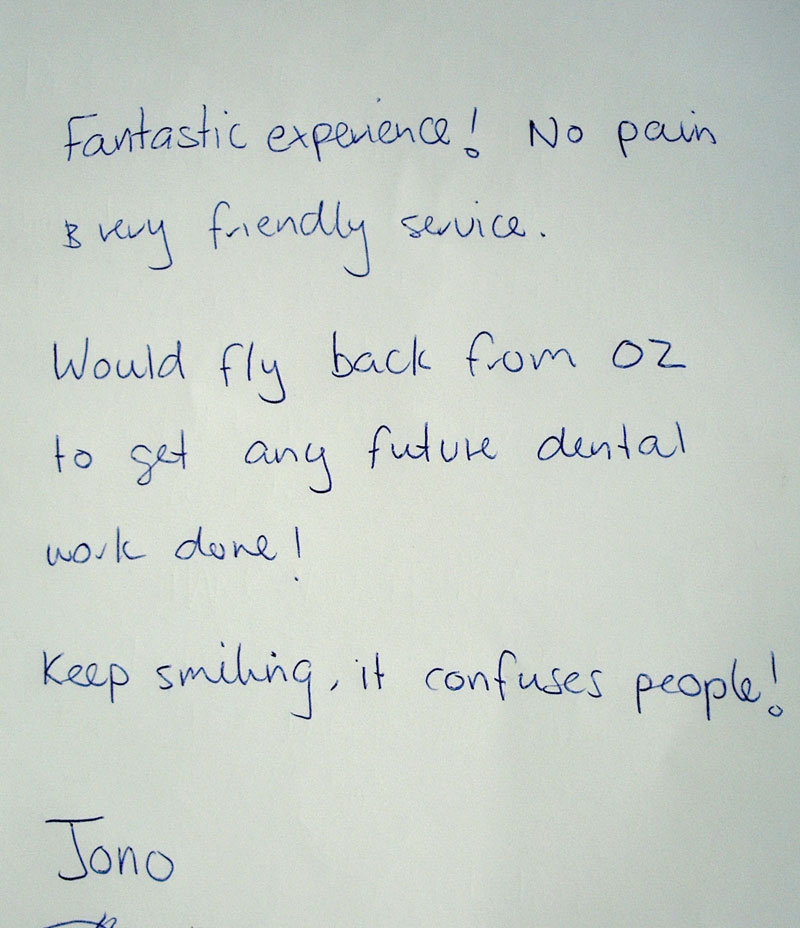 Fantastic experience! No pain
& very friendly service.
Would fly back from OZ
to get any future dental
work done!
Keep smiling, it confuses people!
Jono